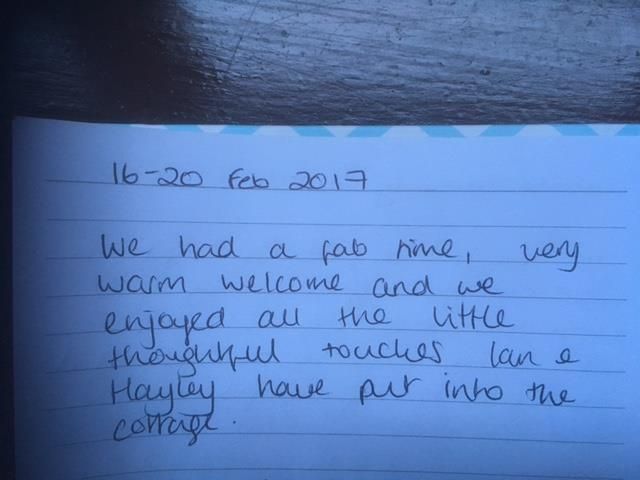 16-20 Feb 2017
We had a fab time, very
warm welcome and we
enjoyed all the little
thoughtful touches Ian &
Hayley have put into the
cottage.